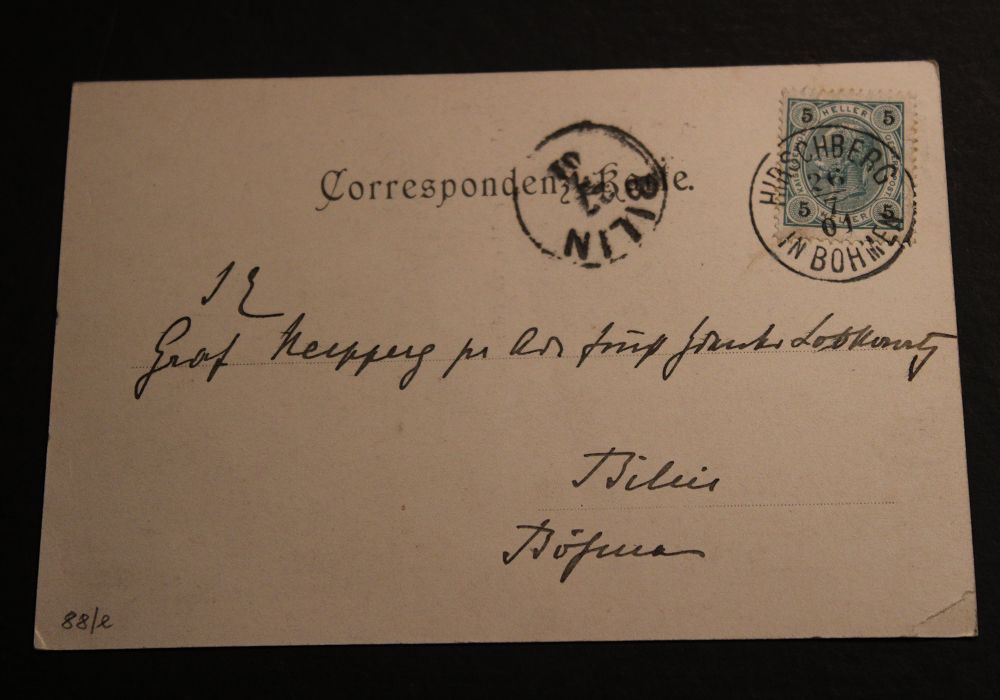 Correspondenz-Karte.
BILIN
27
5 HELLER 5
5 HELLER 5
HIRSCHBERG
26
7
01
IN BÖHMEN
S E
Graf Neipperg pr Adr Fürst Lobkowitz
Bilin
Böhmen
88/e